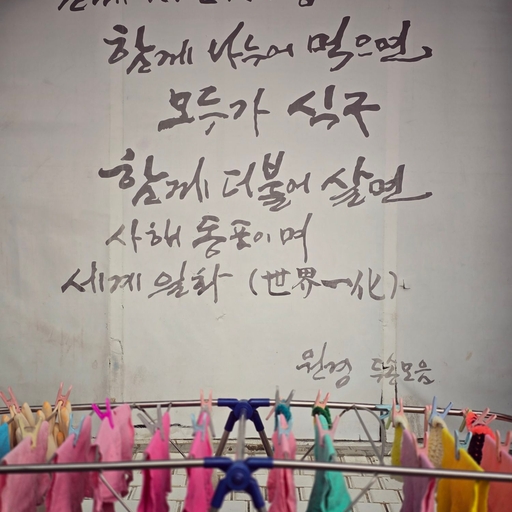 함께 나누어 먹으면
모두가 식구
함께 더불어 살면
사해 동포이며
세계 일화 (世界一化)
원경 두손모음